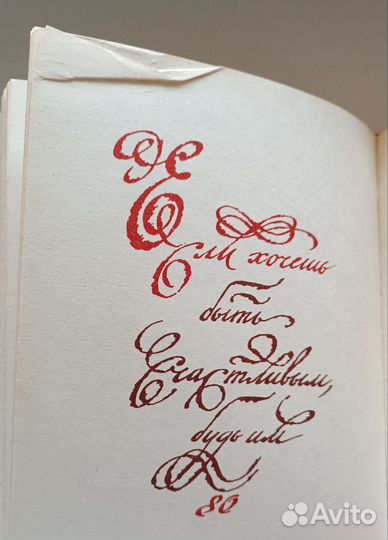 Если хочешь
быть
счастливым,
будь им
80
Avito